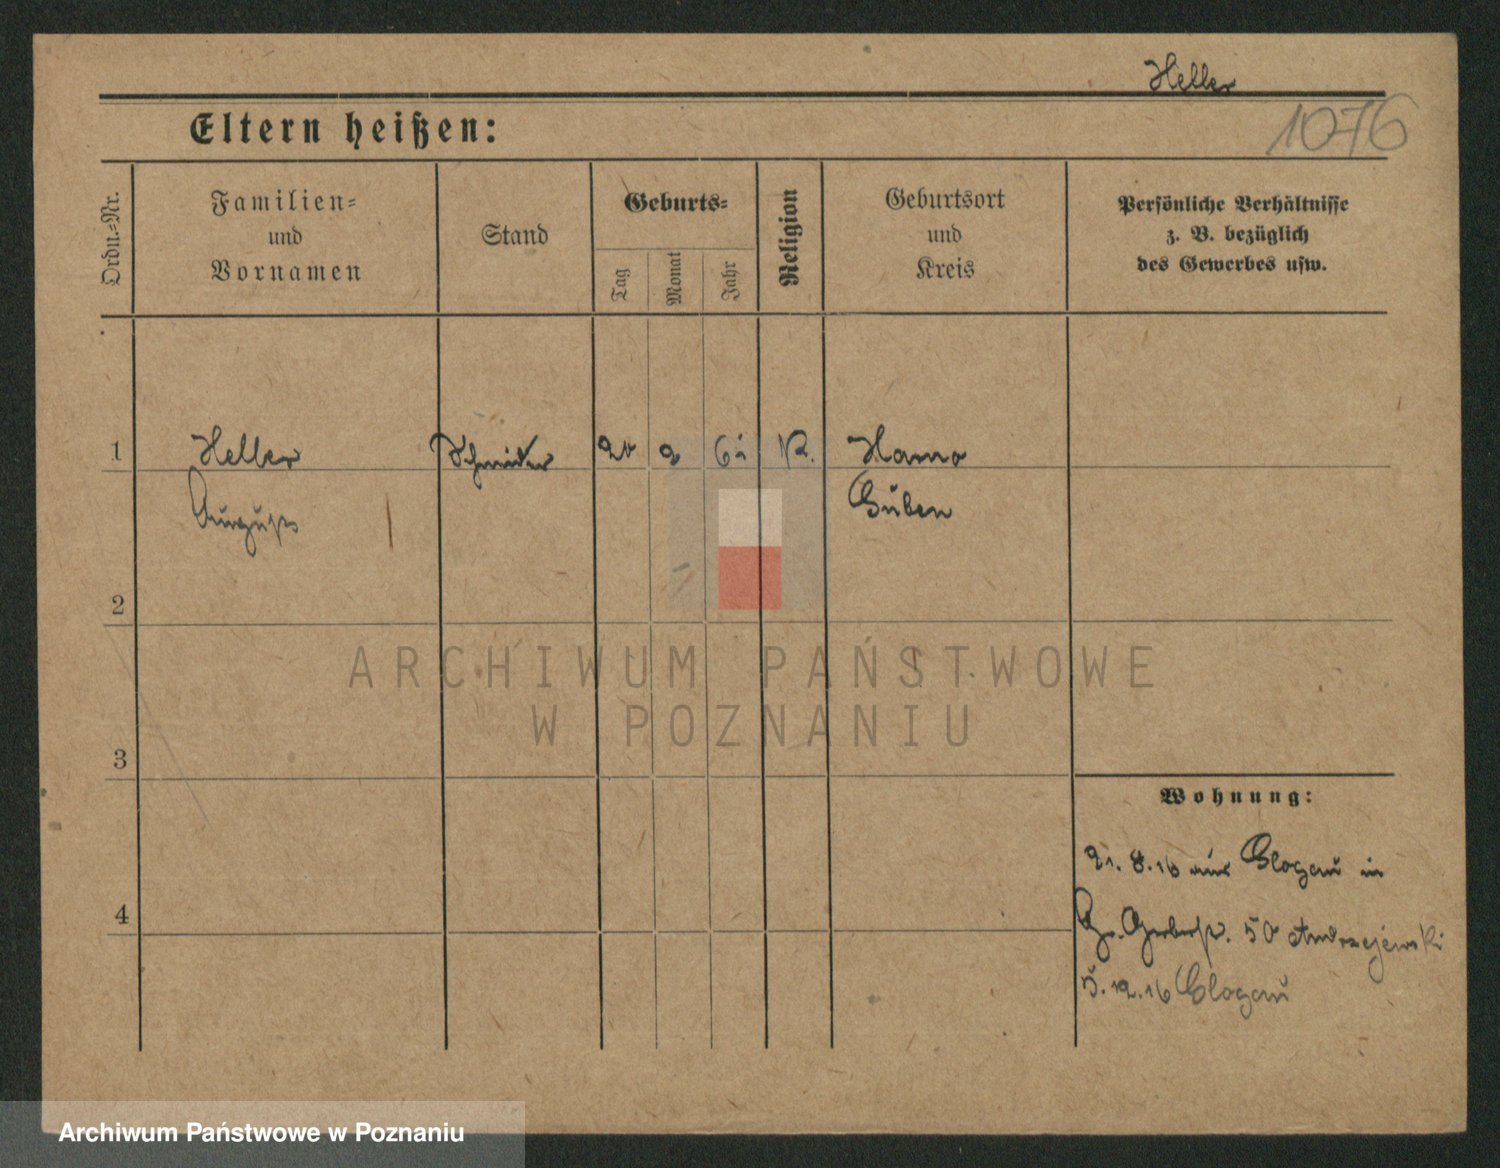 Heller
1076
Eltern heißen:
Ordn.-Nr.
Familien-
und
Vornamen
Stand
Geburts-
Tag
Monat
Jahr
Religion
Geburtsort
und
Kreis
Persönliche Verhältnisse
z. B. bezüglich
des Gewerbes usw.
1
Heller
August
Schneider
20
2
K.
Guben
2
ARCHIWUM PAŃSTWOWE
W POZNANIU
3
Wohnung:
21. 8. 16 aus Glogau in
Gr. Gerberstr. 50 Andrzejewski
4
5. 12. 16 Glogau
Archiwum Państwowe w Poznaniu